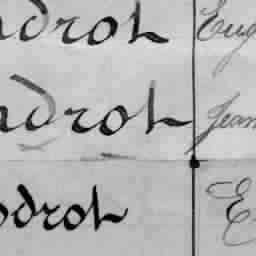 ndrot Eug
ndrot Jean
odrot E